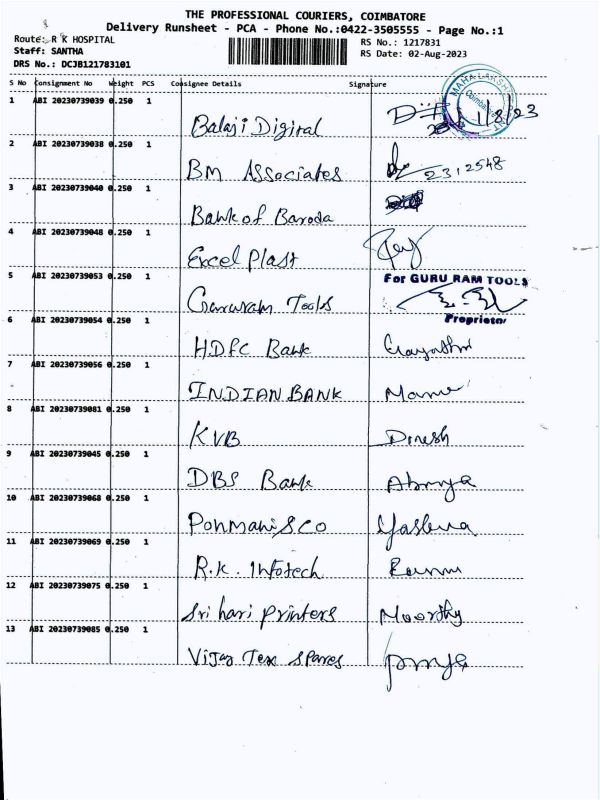 THE PROFESSIONAL COURIERS, COIMBATORE
Delivery Runsheet - PCA - Phone No.:0422-3505555 - Page No.:1
Route: R K HOSPITAL
RS No.: 1217831
Staff: SANTHA
RS Date: 02-Aug-2023
DRS No.: DCJB121783101
S No Consignment No Weight PCS Consignee Details Signature
1 ABI 20230739039 0.250 1
Balaji Digital 1/8/23
2 ABI 20230739038 0.250 1
BM Associates 2312548
3 ABI 20230739040 0.250 1
Bank of Baroda
4 ABI 20230739048 0.250 1
Excel Plast
5 ABI 20230739053 0.250 1
For GURU RAM TOOLS
Gururam Tools
Proprietor
6 ABI 20230739054 0.250 1
HDFC Bank Gayathri
7 ABI 20230739056 0.250 1
INDIAN BANK
8 ABI 20230739081 0.250 1
KVB Dinesh
9 ABI 20230739045 0.250 1
DBS Bank
10 ABI 20230739068 0.250 1
Ponmani & Co
11 ABI 20230739069 0.250 1
R.K. Infotech
12 ABI 20230739075 0.250 1
Sri hari printers Moorthy
13 ABI 20230739085 0.250 1
Vijay Tex Spares